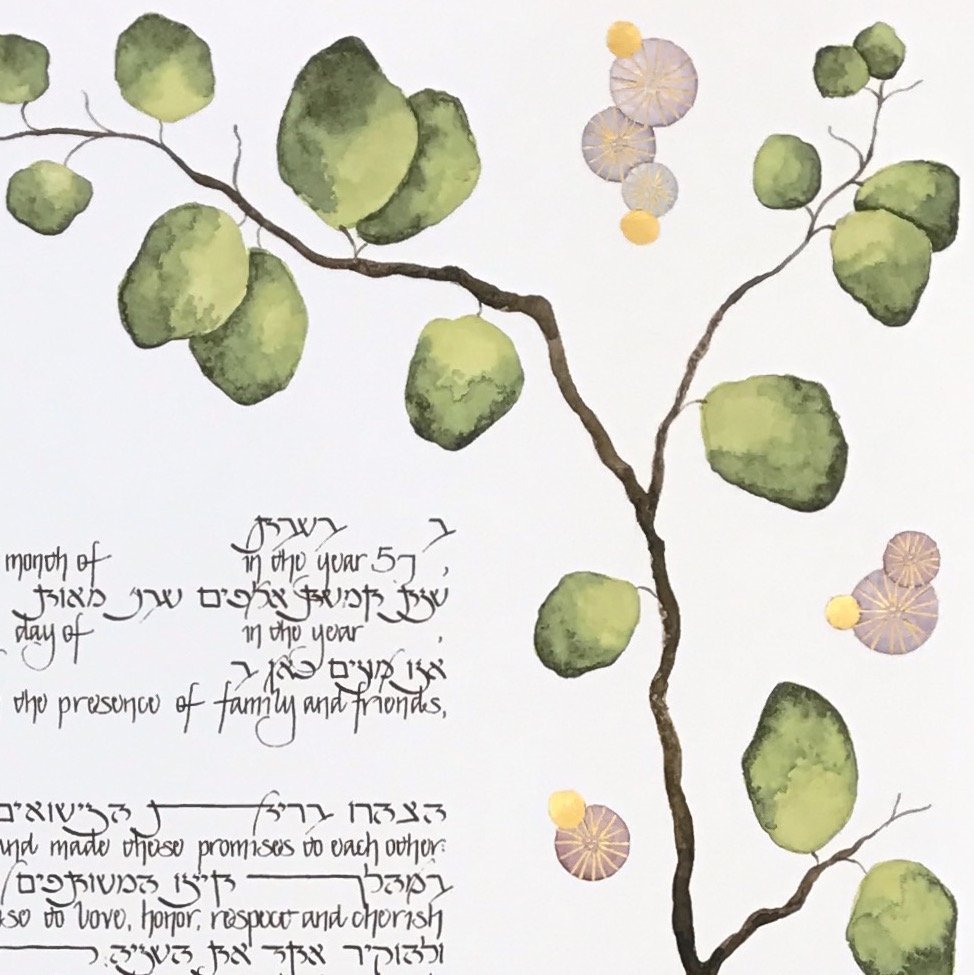 ב בשנת
month of in the year 57 ,
שנת חמשת אלפים שבע מאות
day of in the year ,
אנו כאן ב
the presence of family and friends,
ברית הנישואים
and made these promises to each other:
במהלך חיינו המשותפים
to love, honor, respect and cherish
ולהוקיר אחד את השניה